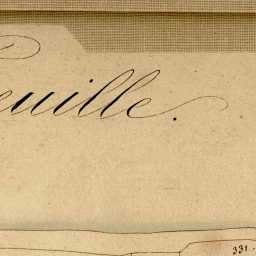 euille.
331.